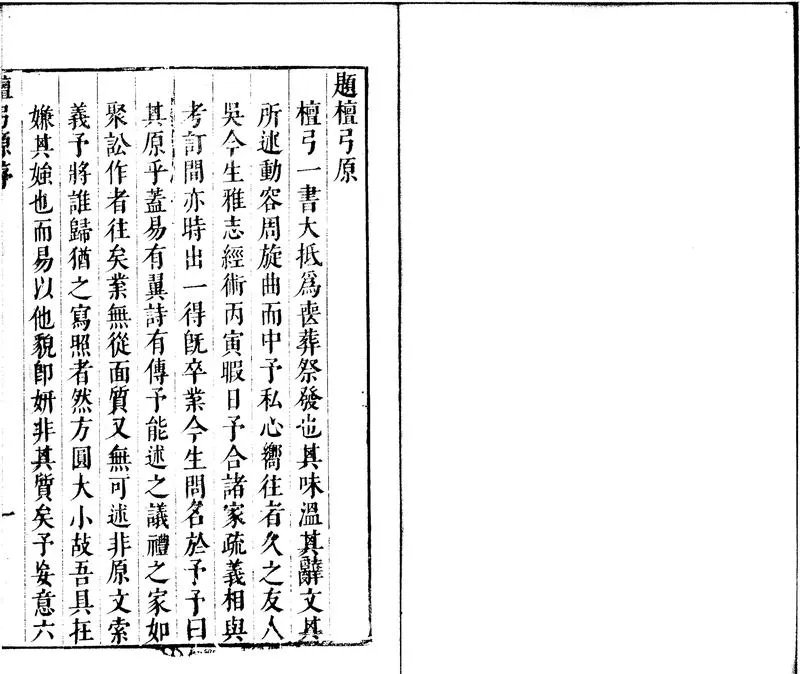 題檀弓原
檀弓一書大抵爲喪葬祭發也其味溫其辭文其
所述動容周旋曲而中予私心嚮往者久之友人
吳今生雅志經術丙寅暇日予合諸家疏義相與
考訂間亦時出一得旣卒業今生問名於予予曰
其原乎蓋易有翼詩有傳予能述之議禮之家如
聚訟作者往矣業無從面質又無可述非原文索
義予將誰歸猶之寫照者然方圓大小故吾具在
嫌其媸也而易以他貌卽妍非其質矣予妄意六
檀弓原序
一